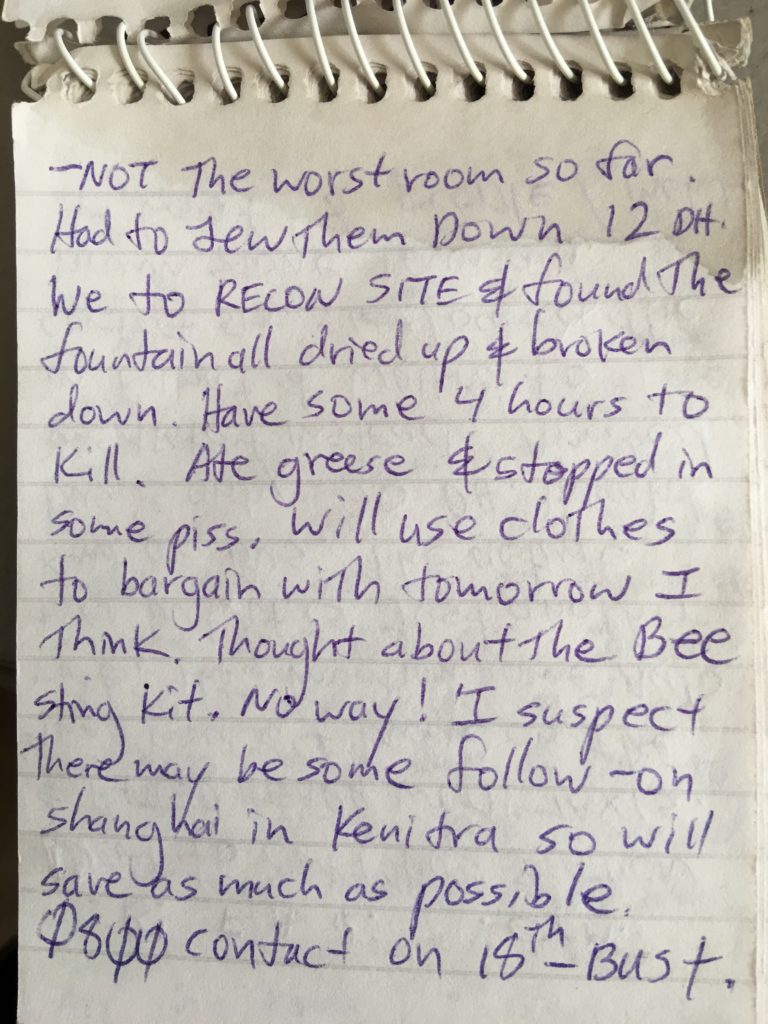 -NOT The worst room so far.
Had to Jew Them Down 12 DH.
We to RECON SITE & found The
fountain all dried up & broken
down. Have some 4 hours to
Kill. Ate greese & stopped in
some piss. Will use clothes
to bargain with tomorrow I
Think. Thought about The Bee
sting Kit. No way! I suspect
There may be some follow-on
shanghai in Kenitra so will
save as much as possible.
0800 contact on 18Th-Bust.